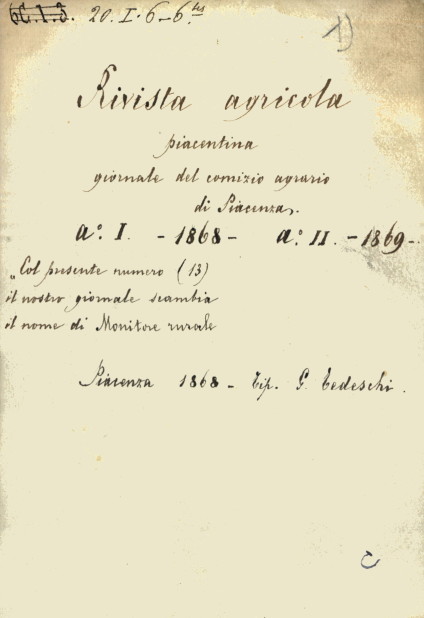 6C.I.3. 20. I. 6-6 bis
1)
Rivista agricola
piacentina
giornale del comizio agrario
di Piacenza.
a.° I. - 1868 - a.° II. - 1869 -
„Col presente numero (13)
il nostro giornale scambia
il nome di Monitore rurale
Piacenza 1868 - Tip. G. Tedeschi.